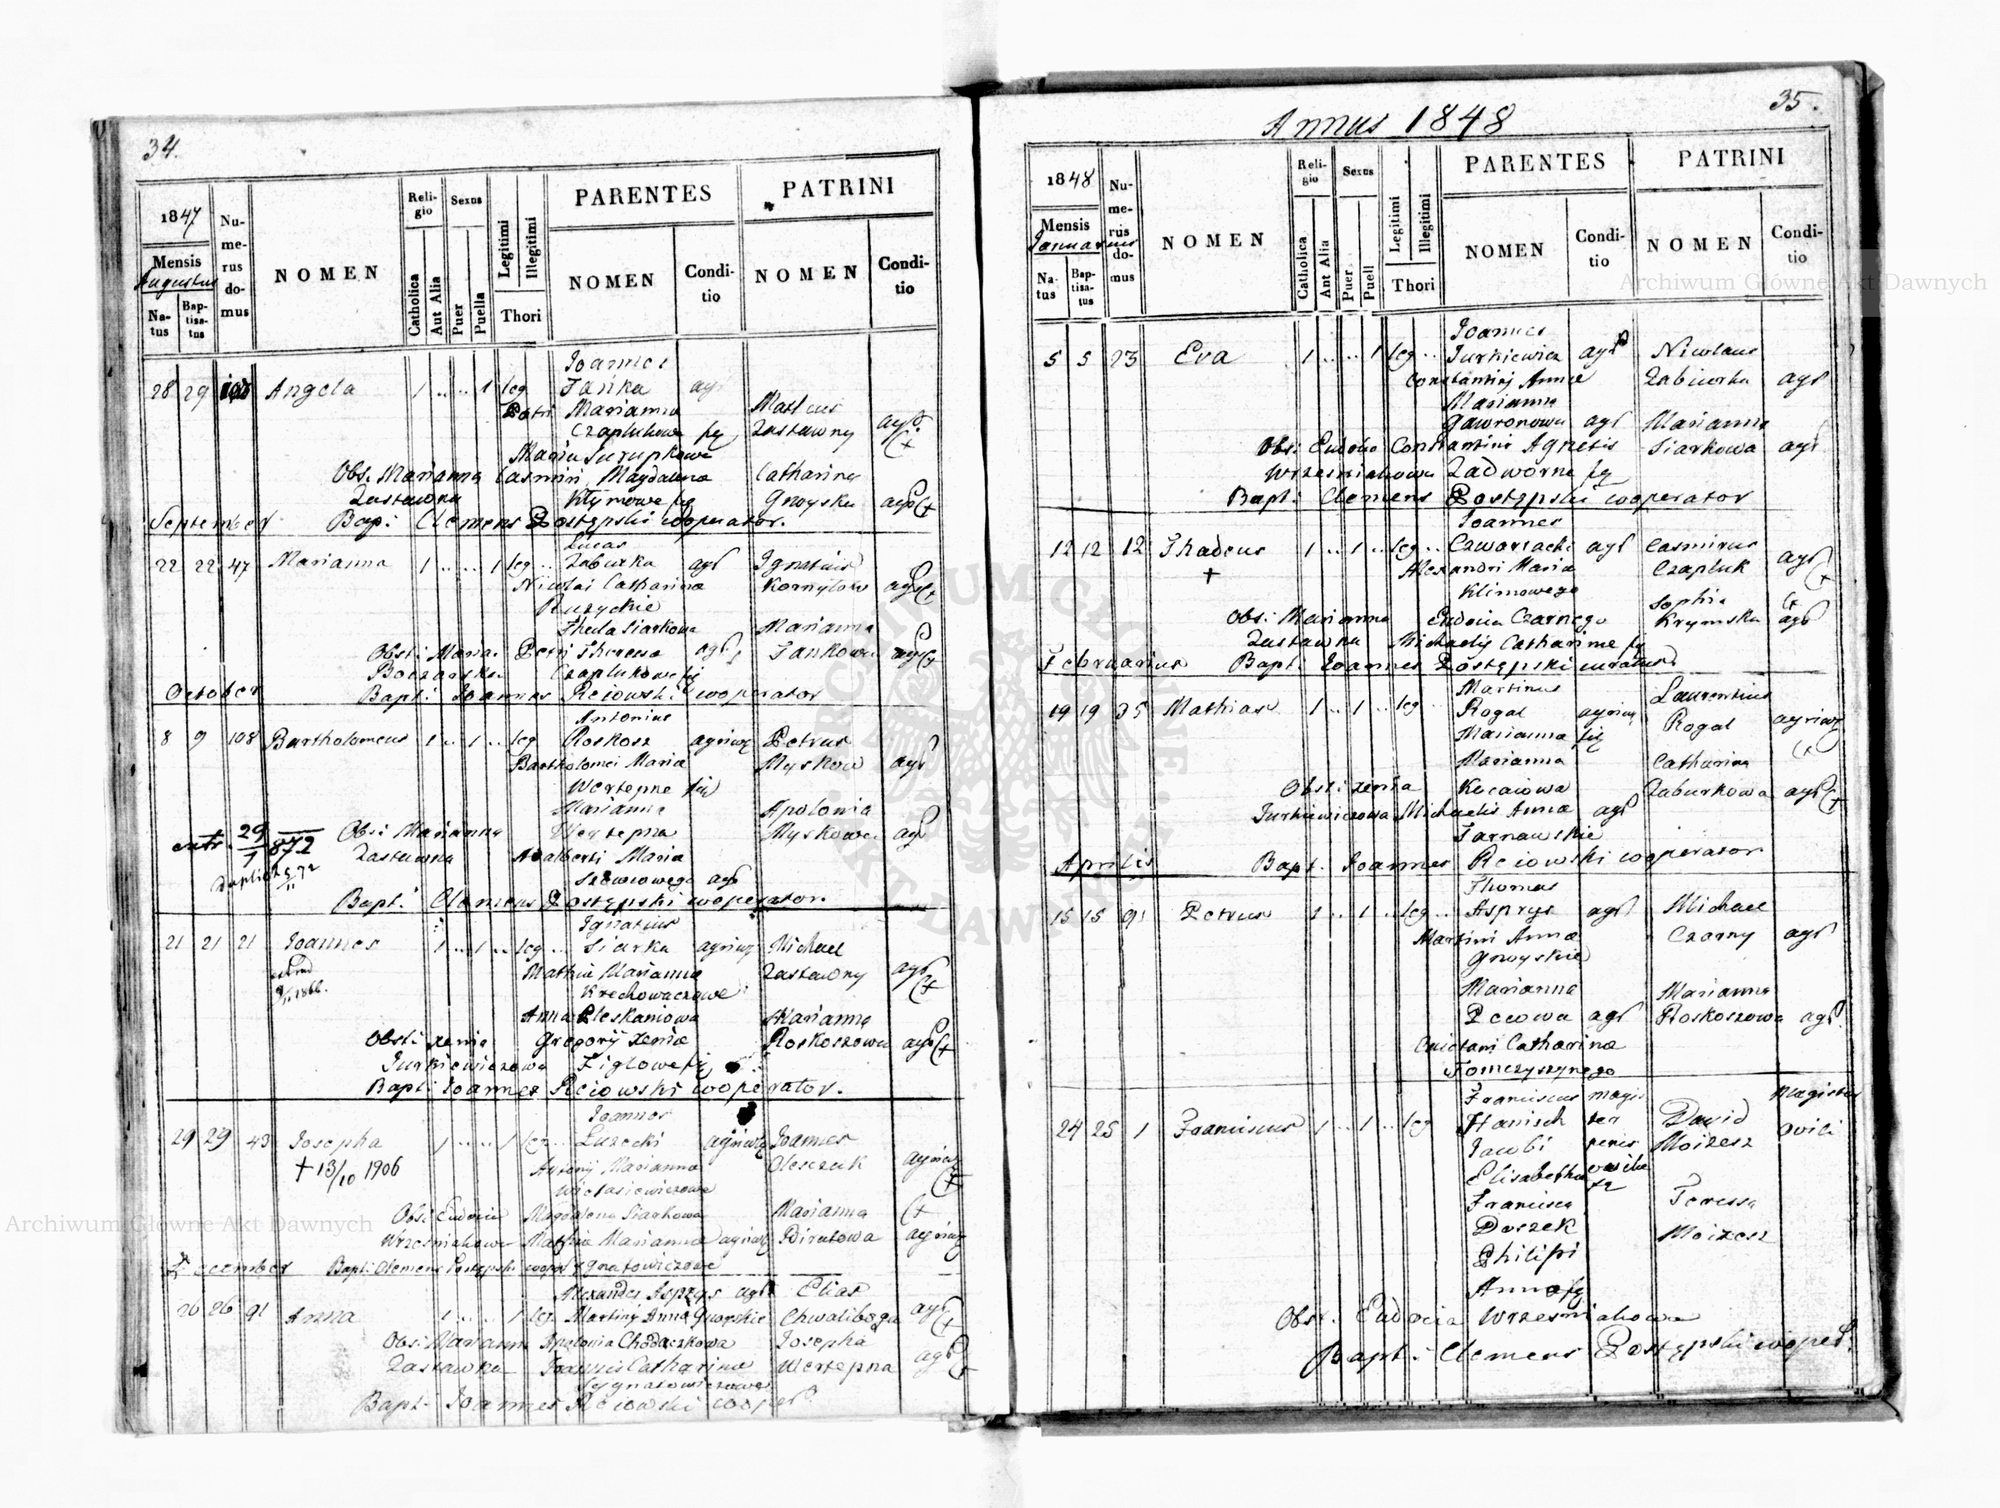 34.
1847
Mensis
Augustus
Natus
Baptisatus
Numerus domus
NOMEN
Religio
Catholica
Aut Alia
Sexus
Puer
Puella
Legitimi
Illegitimi
Thori
PARENTES
NOMEN
Conditio
PATRINI
NOMEN
Conditio
Joannes
28 29 Angela 1 .. .. 1 leg Jańka agr
Petri Marianna Matheus
Czaplukowa Zastawny agr
Maria
Obs: Marianna Casmiri Magdalena Catharina
Zastawna Gnoyska agr
September Bap: Clemens Postępski cooperator.
Lucas
22 22 47 Marianna 1 .. .. 1 leg .. Zaburka agr Ignatius
Nicolai Catharina Kornylow agr
Ruzyckie
Thecla Siarkowa Marianna
Obst: Maria Petri Theressa agr Jankowa agr
Czaplukowe
October Bapt: Joannes Reiowski cooperator
Antonius
8 9 108 Bartholomeus 1 .. 1 .. leg Roskosz Petrus
Bartholomei Maria Myskow agr
Wertepne
Marianna Apolonia
29 1 872
Obs: Marianna Wertepna Myskowa agr
Zastawna Adalberti Maria
Szewcowego agr
Bapt: Clemens Postępski cooperator.
Ignatius
21 21 21 Joannes 1 .. 1 .. leg ... Siarka Michael
Mathia Marianna Zastawny agr
Krechowaczowe
Anna Pleskaniowa Marianna
Obst: Xenia Gregorij Xenia Roskoszowa agr
Jurkiewiczowa Figlowe
Bapt: Joannes Reiowski cooperator.
Joannes
29 29 43 Josepha 1 .. .. 1 leg .. Luzecki Joannes
+ 13/10 1906 Antonij Marianna Olesczuk
Obs: Eudocia Magdalena Siarkowa Marianna
Wrzesniakowa Mathia Marianna Pirutowa
December Bapt: Clemens Postępski cooper Ignatowiczowe
Alexander Asprys agr Elias
26 26 91 Anna 1 .. .. 1 leg Martini Anna Gnoyskie Chwaliboga agr
Obs: Marianna Apolonia Chodaczkowa Josepha
Zastawna Joannis Catharina Wertepna agr
Bapt: Joannes Reiowski cooper
35.
Annus 1848
1848
Mensis
Januarius
Natus
Baptisatus
Numerus domus
NOMEN
Religio
Catholica
Aut Alia
Sexus
Puer
Puell
Legitimi
Illegitimi
Thori
PARENTES
NOMEN
Conditio
PATRINI
NOMEN
Conditio
Joannes
5 5 23 Eva 1 .. .. 1 leg .. Jurkiewicz agr Nicolaus
Constantini Anna Zabiurka agr
Marianna
Gawronowa agr Marianna
Obs: Eudocia Constantini Agnetis Siarkowa agr
Wrzesniakowa Zadworne
Bapt: Clemens Postępski cooperator
Joannes
12 12 12 Thadeus 1 .. 1 .. leg .. Czwartacki agr Casmirus
+ Alexandri Maria Czapluk agr
Klimowego
Sophia
Obs: Marianna Eudocia Czarnego Krymska agr
Zastawna Michaelis Catharinae
Februarius Bapt: Joannes Postępski curatus
Martinus Laurentius
19 19 35 Mathias 1 .. 1 .. leg Rogal Rogal
Marianna
Marianna Catharina
Obst: Xenia Kocaiowa Zaburkowa agr
Jurkiewiczowa Michaelis Anna agr
Tarnawskie
Aprilis Bapt: Joannes Reiowski cooperator
Thomas
15 15 91 Petrus 1 .. 1 .. leg .. Asprys agr Michael
Martini Anna Czarny agr
Gnoyskie
Marianna Marianna
Pecowa agr Roskoszowa agr
Catharina
Tomczyszynego
Franciscus magis Magister
24 25 1 Franciscus 1 .. 1 .. leg Hanisch ter David ovili
Jacobi Moizesz
Elisabetha
Francisca Teressa
Doszek Moizesz
Philipi
Anna
Obst: Eudocia Wrzesniakowa
Bapt: Clemens Postępski cooper.
Archiwum Główne Akt Dawnych
Archiwum Główne Akt Dawnych
ARCHIWUM GŁÓWNE AKT DAWNYCH